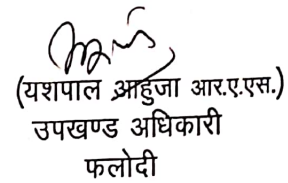 (यशपाल आहुजा आर.ए.एस.)
उपखण्ड अधिकारी
फलोदी